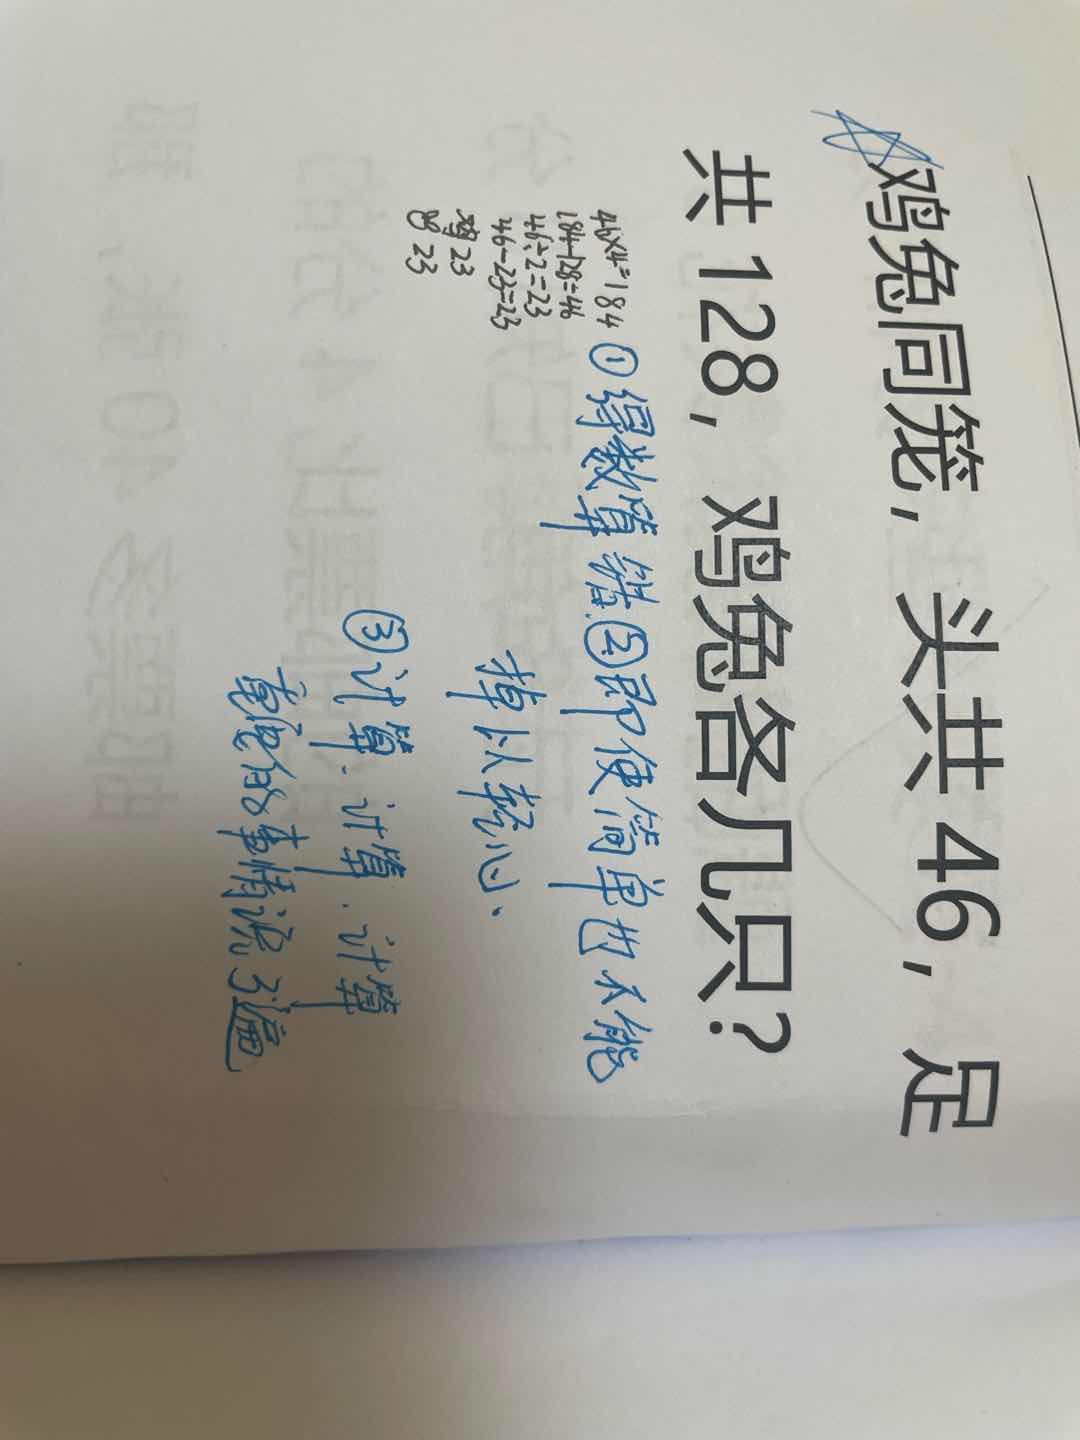 鸡兔同笼，头共 46，足
共 128，鸡兔各几只？
46×4=184
184-128=46
46÷2=23
46-23=23
鸡23
兔23
①得数算错.②即便简单也不能
掉以轻心.
③计算.计算.计算
重要的事情说3遍